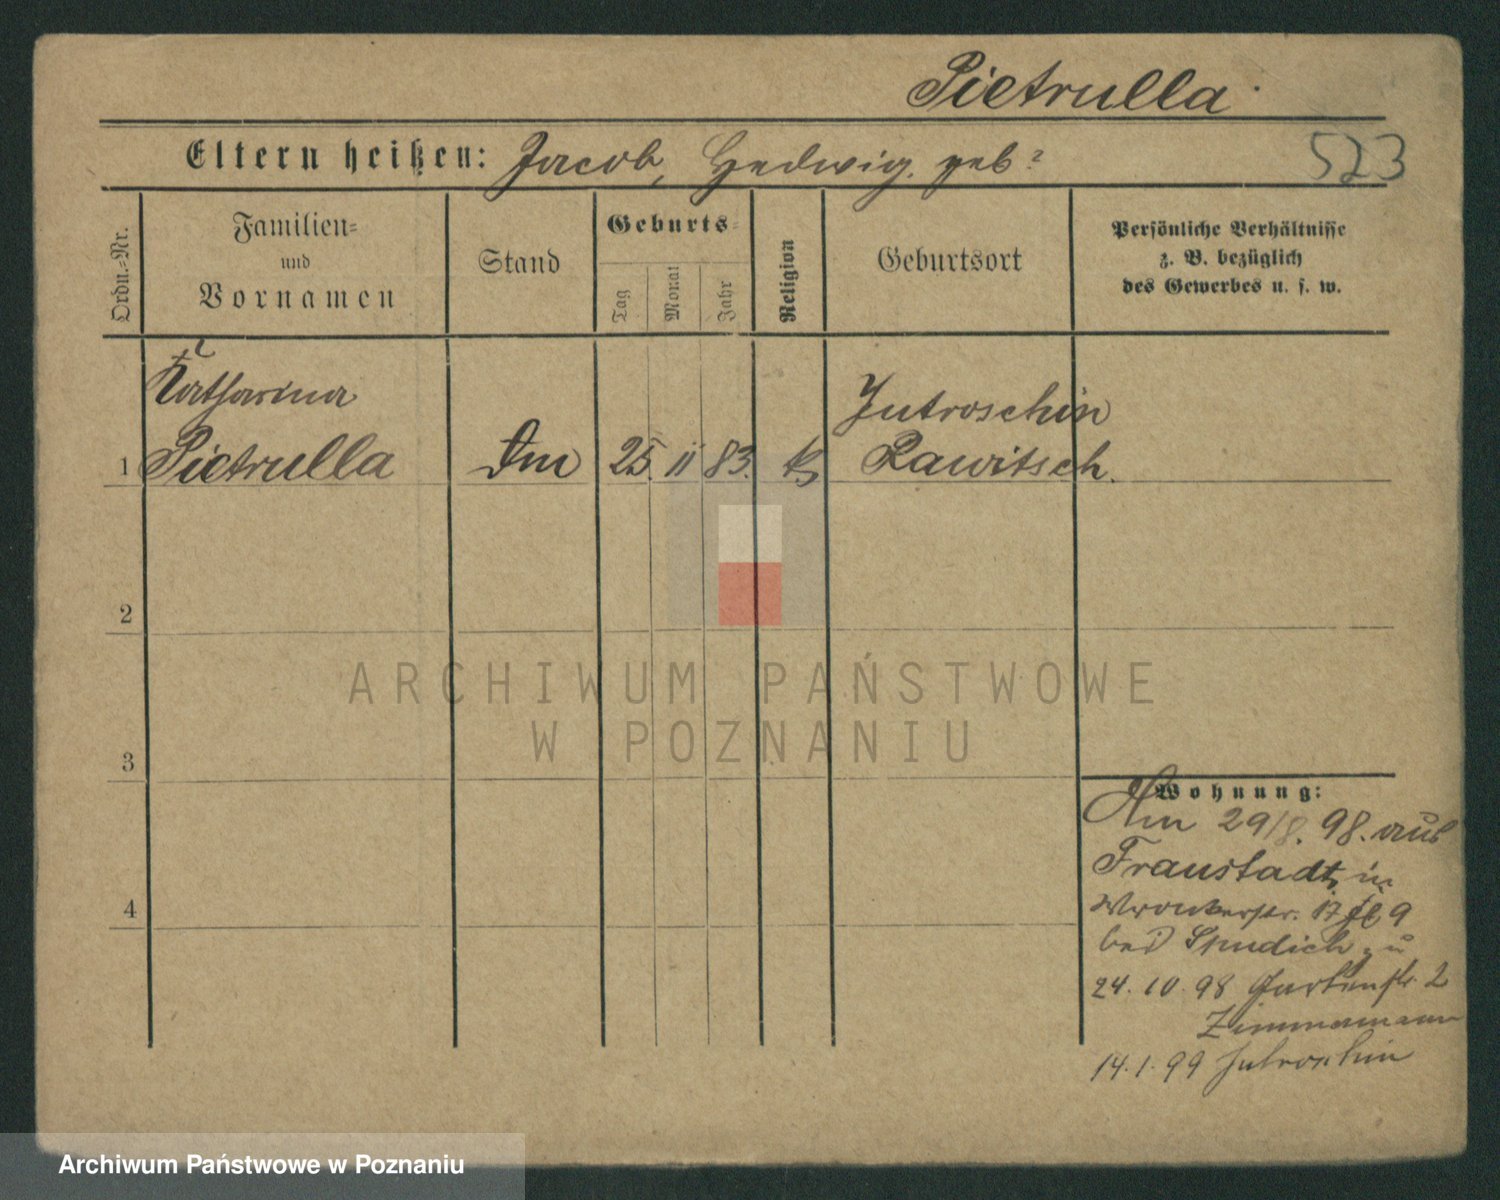 Pietrulla
Eltern heißen: Jacob, Hedwig geb?
523
Ordn.-Nr.
Familien-
und
Vornamen
Stand
Geburts-
Tag
Monat
Jahr
Religion
Geburtsort
Persönliche Verhältnisse
z. B. bezüglich
des Gewerbes u. s. w.
Katharina
Jutroschin
1 Pietrulla 25. 11 83. Rawitsch.
2
ARCHIWUM PAŃSTWOWE
W POZNANIU
3
Wohnung:
Am 29/8. 98. aus
Fraustadt, in
Wronkerstr. 17 9
bei Spudich zu
4
24. 10. 98 Gartenstr. 2
Zimmermann
14. 1. 99 Jutroschin
Archiwum Państwowe w Poznaniu